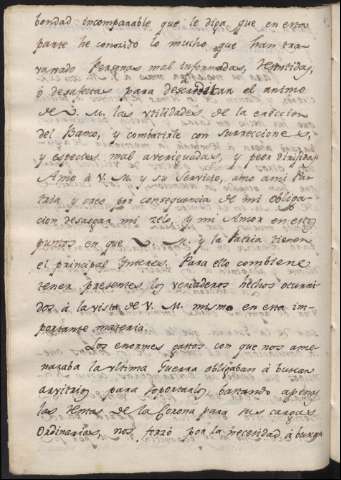 bondad incomparable que le diga, que en esta
parte he conocido lo mucho que han tra-
vajado Personas mal informadas, 
ó desafectas para desarraigar el animo
de S. M. las utilidades de la ereccion
del Banco, y combatirle con 
y especies mal averiguadas, y peor dirigidas
Amo á V. M. y su servicio, amo ami Pa-
tria y nace por consequencia de mi obliga-
cion desaogar mi zelo, y mi Amor en estos
puntos en que V. M. y la Patria tienen
el principal Interes. Para ello combiene
tener presentes los verdaderos hechos ocurri-
dos á la vista de V. M. mismo en esta im-
portante materia.
Los enormes gastos con que nos ame-
nazaba la ultima Guerra obligaban á buscar
arvitrios para soportarlos, bastando apenas
las Rentas de la Corona para sus cargas
Ordinarias, nos forzó por la necesidad á buscar